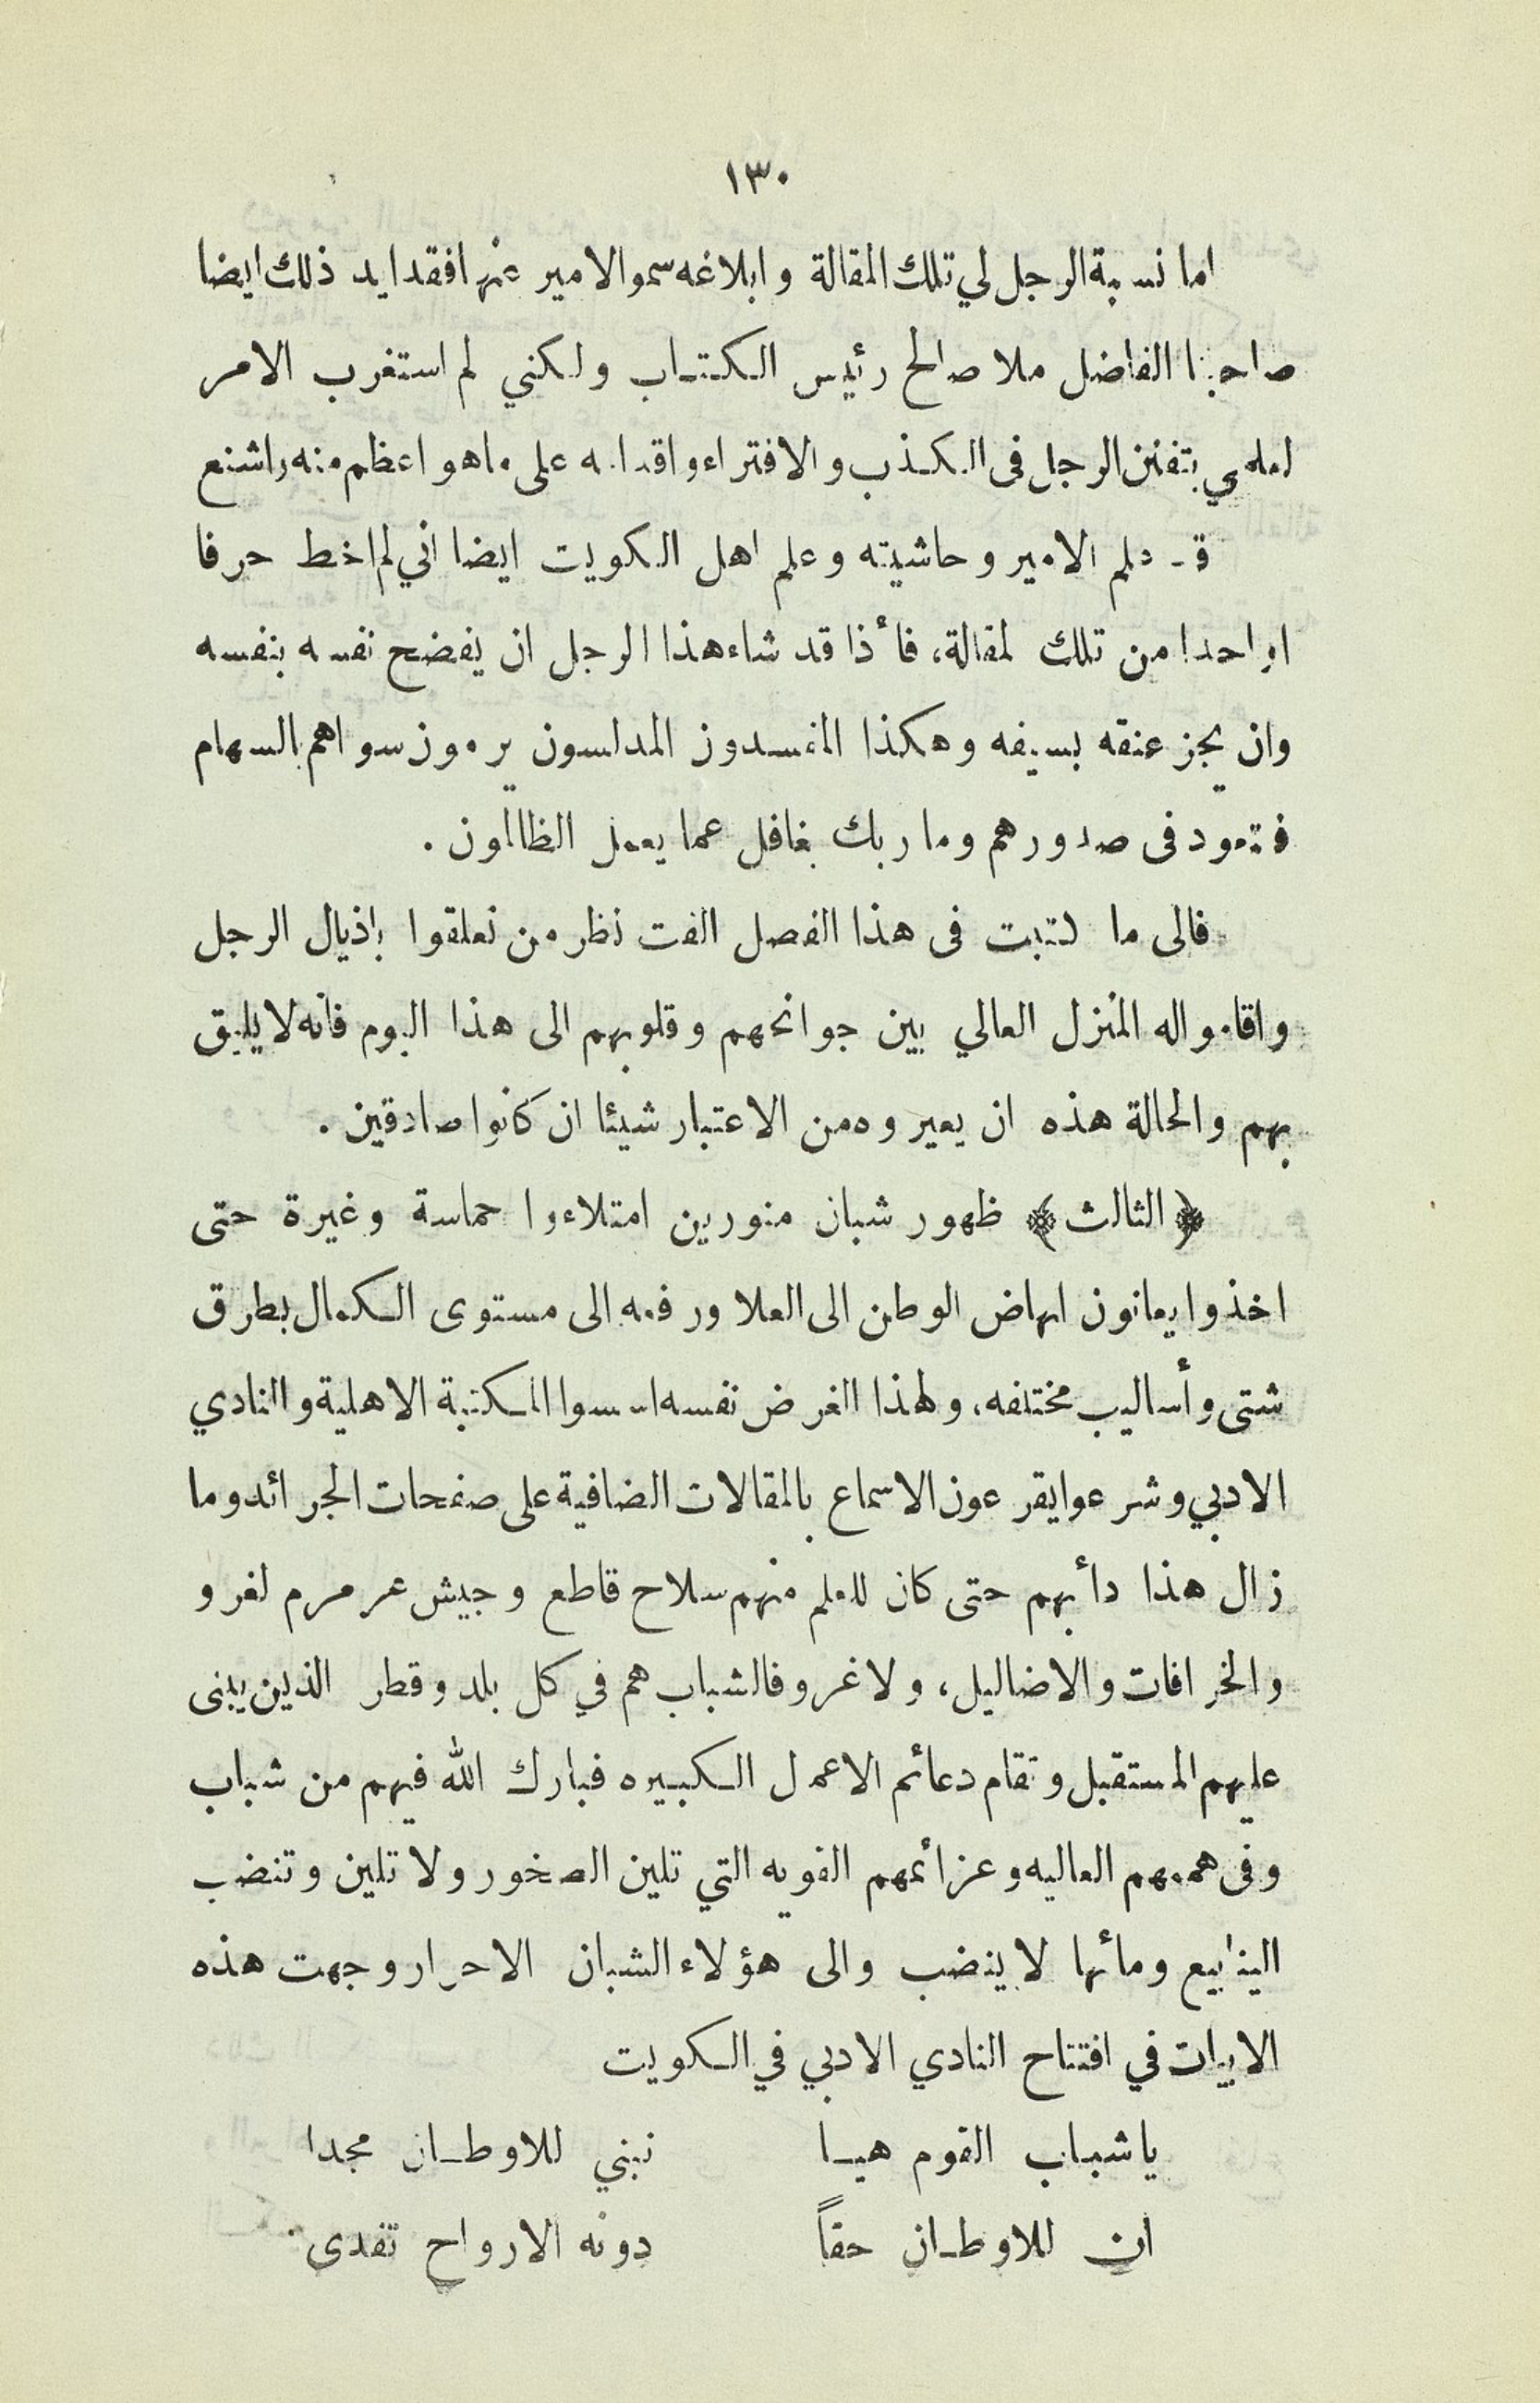 ١٣٠
اما نسبة الرجل لي تلك المقالة وابلاغه سمو الامير عنها فقد ايد ذلك ايضا
صاحبنا الفاضل ملا صالح رئيس الكتاب ولكني لم استغرب الامر
لعلمي بتفنن الرجل فى الكذب والافتراء واقدامه على ماهو اعظم منه واشنع
قد علم الامير وحاشيته وعلم اهل الكويت ايضا اني لم اخط حرفا
واحدا من تلك المقالة، فأذا قد شاء هذا الرجل ان يفضح نفسه بنفسه
وان يجز عنقه بسيفه وهكذا المفسدون المدلسون يرمون سواهم بالسهام
فتعود فى صدورهم وما ربك بغافل عما يعمل الظالمون .
فالى ما كتبت فى هذا الفصل الفت نظر من تعلقوا باذيال الرجل
واقاموا له المنزل العالي بين جوانحهم وقلوبهم الى هذا اليوم فانه لا يليق
بهم والحالة هذه ان يعيروه من الاعتبار شيئا ان كانوا صادقين .
﴿ الثالث ﴾ ظهور شبان منورين امتلاءوا حماسة وغيرة حتى
اخذوا يعانون انهاض الوطن الى العلا ورفعه الى مستوى الكمال بطرق
شتى وأساليب مختلفه، ولهذا الغرض نفسه اسسوا المكتبة الاهلية والنادي
الادبي وشرعوا يقرعون الاسماع بالمقالات الضافية على صفحات الجرائد وما
زال هذا دأبهم حتى كان للعلم منهم سلاح قاطع وجيش عرمرم لغزو
والخرافات والاضاليل، ولا غرو فالشباب هم في كل بلد وقطر الذين يبنى
عليهم المستقبل وتقام دعائم الاعمال الكبيره فبارك الله فيهم من شباب
وفى هممهم العاليه وعزائمهم القويه التي تلين الصخور ولا تلين وتنضب
الينابيع ومأئها لا ينضب والى هؤلاء الشبان الاحرار وجهت هذه
الابيات في افتتاح النادي الادبي في الكويت
ياشباب القوم هيا نبني للاوطان مجدا
ان للاوطان حقاً دونه الارواح تفدى